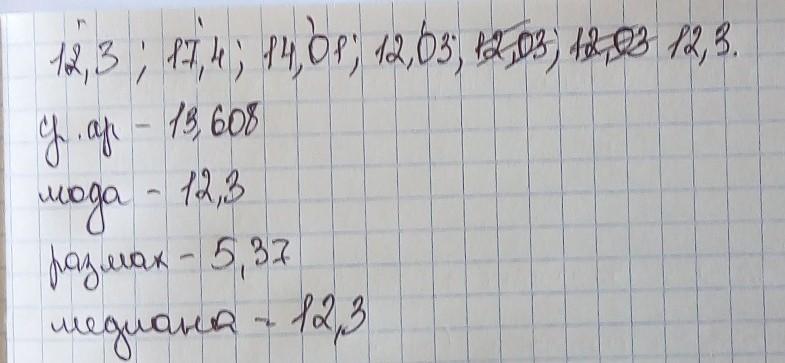 12,3; 17,4; 14,01; 12,03; 12,03; 12,03 12,3.
ср. ар - 13,608
мода - 12,3
размах - 5,37
медиана - 12,3